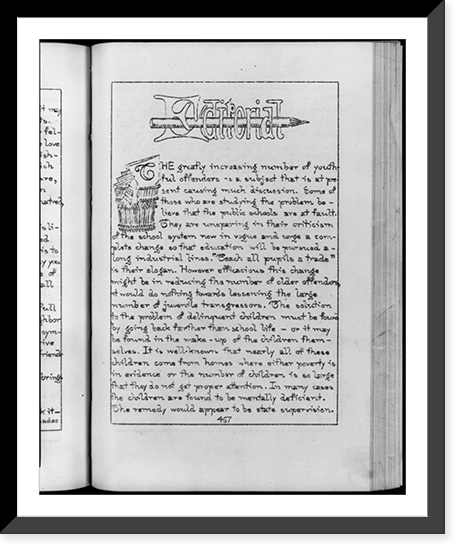 it may
ts.
fel-
love
ish-
ch
re,
n
hatred,
s li-
ed
is to
ay
of
all
Full
ghbor
sym-
tive
friends
brings
k it-
Editorial
THE greatly increasing number of youth-
ful offenders is a subject that is at pre
sent causing much discussion. Some of
those who are studying the problem be-
lieve that the public schools are at fault.
They are unsparing in their criticism
of the school system now in vogue and urge a com-
plete change so that education will be pursued a-
long industrial lines. "Teach all pupils a trade"
is their slogan. However efficacious this change
might be in reducing the number of older offenders,
it would do nothing towards lessening the large
number of juvenile transgressors. The solution
to the problem of delinquent children must be found
by going back farther than school life - or it may
be found in the make-up of the children them-
selves. It is well-known that nearly all of these
children come from homes where either poverty is
in evidence or the number of children is so large
that they do not get proper attention. In many cases
the children are found to be mentally deficient.
The remedy would appear to be state supervision.
467